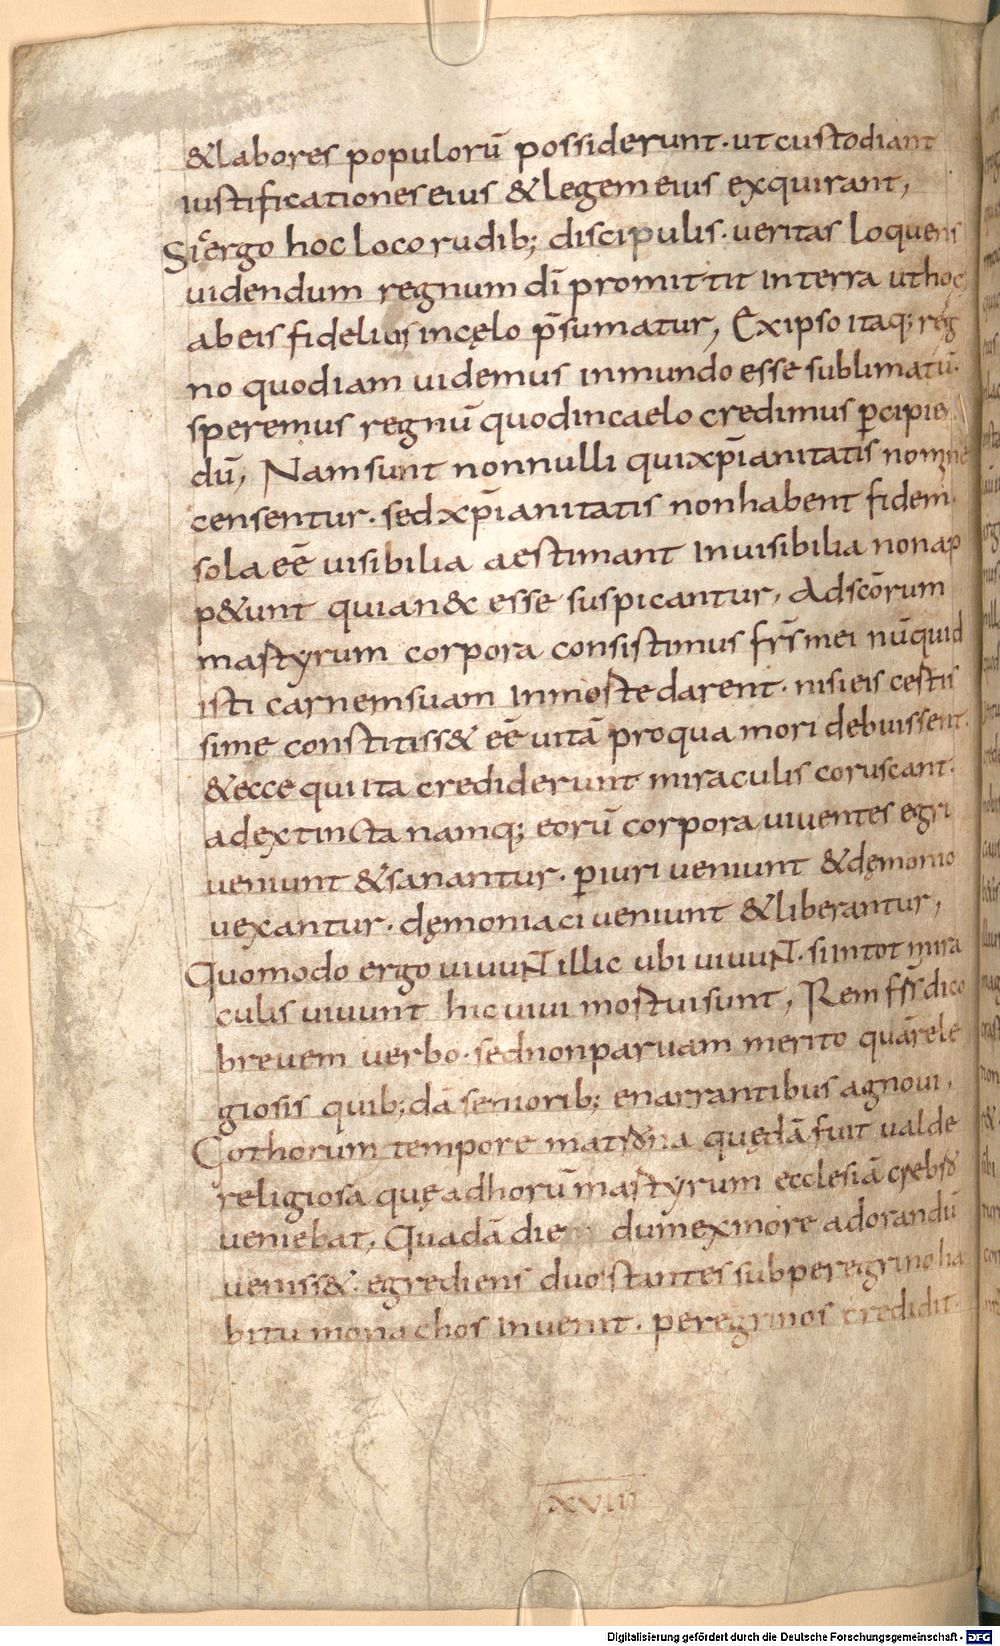 &labores populorū possiderunt· ut custodiant
iustificationes eius &legem eius exquirant,
Sic ergo hoc loco rudib; discipulis· ueritas loquens
uidendum regnum dī promittit in terra ut hoc
ab eis fidelius in cęlo p̄sumatur, Ex ipso itaq; reg
no quod iam uidemus in mundo esse sublimatū·
speremus regnū quod in caelo credimus ꝑcipien
dū, Nam sunt nonnulli qui xp̄ianitatis nomine
censentur· sed xp̄ianitatis non habent fidem·
sola eē uisibilia aestimant inuisibilia non ap
p&unt quia n&c esse suspicantur, Ad scōrum
martyrum corpora consistimus fr̄s mei nūquid
isti carnem suam in morte darent· nisi eis certis
sime constitiss& eē uitā pro qua mori debuissent·
&ecce qui ita crediderunt miraculis coruscant·
ad extincta namq; eorū corpora uiuentes egri
ueniunt &sanantur· ꝑiuri ueniunt &dęmonio
uexantur· dęmoniaci ueniunt &liberantur,
Quomodo ergo uiuunt illic ubi uiuunt· si in tot mira
culis uiuunt hic ubi mortui sunt, Rem fr̄s dico
breuem uerbo· sed non paruam merito quā rele
giosis quib;dā seniorib; enarrantibus agnoui,
Gothorum tempore matrona quędā fuit ualde
religiosa quę ad horū martyrum ecclesiā crebro
ueniebat, Quadā die dum ex more ad orandū
ueniss&· egrediens duos stantes sub peregrino ha
bitu monachos inuenit· peregrinos credidit·
XVIII
Digitalisierung gefördert durch die Deutsche Forschungsgemeinschaft - DFG